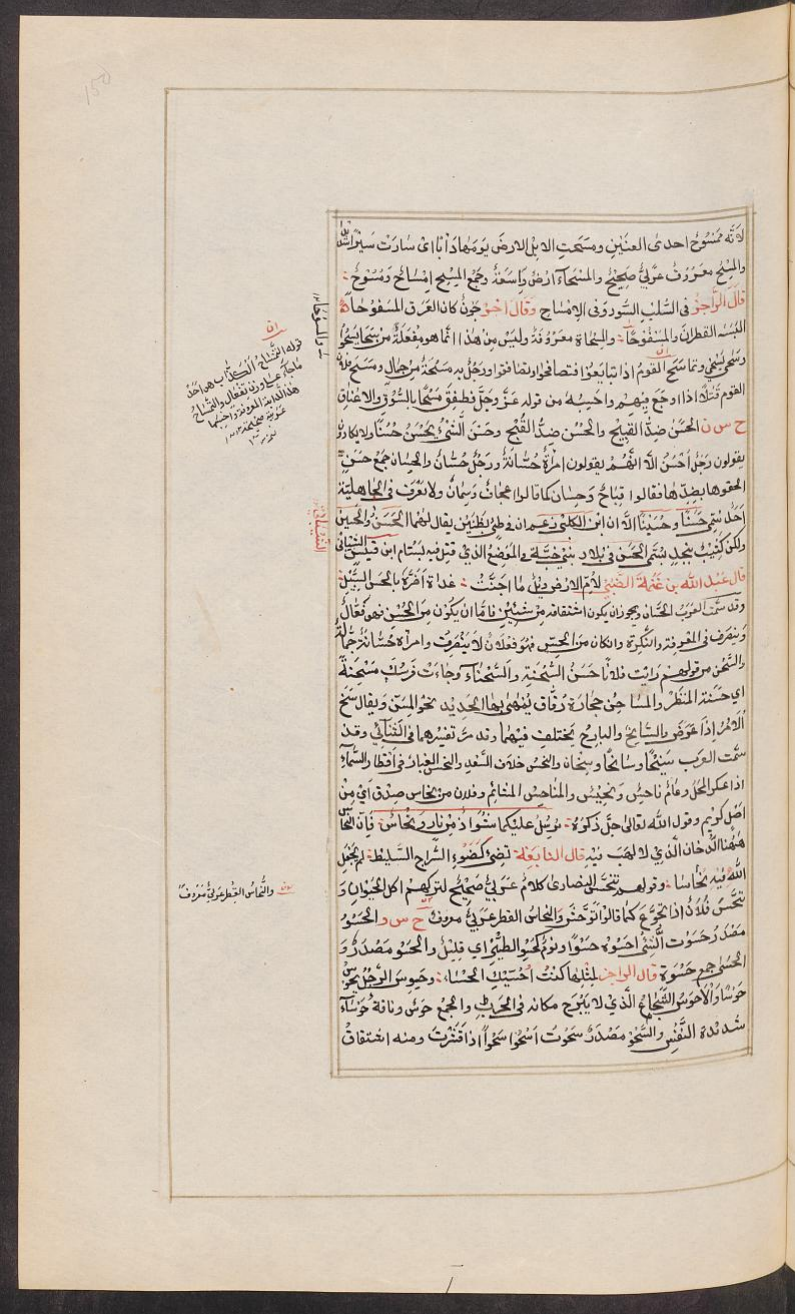 لأنه ممسوح احدى العينين ومسحت الابل الارض يومها دأبا اى سارت سيرا شديدا
والمسح معروف عربيٌ صحيحٌ والمسحاء ارض واسعة وجمع المسح امساح ومسوح
قال الراجز فى السلب السود وفى الامساح وقال آخر جون كان العرق المسفوحا
البسه القطران والمسوحا والمسحاة معروفة وليس من هذا انما هو مفعلة من سحا يسحوا
وسحى يسحى وتماسح القوم اذا تبايعوا فتصافحوا وتصافقوا ورجل به مسحة من جمال ومسح فلان
القوم قتلا اذا اوجع بينهم واحسبه من قوله عز وجل فطفق مسحا بالسوق والاعناق
ح س ن الحسن ضد القبيح والحسن ضد القبح وحسن الشئ يحسن حسنا ولا يكادون
يقولون رجل احسن الا انهم يقولون امرأة حسانة ورجل حسان والحسان جمع حسن
الحقوها بضدها فقالوا قباح وحسان كما قالوا عجاف وسمان ولا نعرف فى الجاهلية
احدا سمى حسنا وحسينا الا ان ابن الكلبى زعم ان فى طئ بطنين يقال لهما الحسن والحسين
ولكن كثيب بنجد يسمى الحسن فى بلاد بنى ضبة والموضع الذي قتل فيه بسطام ابن قيس الشيبانى
قال عبد الله بن عنمة الضبى لأم الارض ويل ما اجنت غداة اضر بالحسن السبيل
وقد سمت العرب الحسان ويجوز ان يكون اشتقاقه من شيئين فاما ان يكون من الحسن فهو فعال
وينصرف فى المعرفة والنكرة وان كان من الحس فهو فعلان لا ينصرف وامرأة حسانة جمالة
والسحن من قولهم رأيت فلانا حسن السحنة والسحناء وجاءت فرسك مسحنة
اى حسنة المنظر والمساحن حجارة رقاق يمهى بها الحديد نحو المسن ويقال سنح
الامر اذا عرض والسانح والبارح يختلف فيهما وقد مر تفسيرهما فى الثنائي وقد
سمت العرب سنيحا وسانحا وسنحان والنحس خلاف السعد والنحس الغبار فى اقطار السماء
اذا عكر المحل وعام ناحس ونحيس والمناحس المشائم وفلان من نحاس صدق اى من
اصل كريم وقول الله تعالى جل ذكره يرسل عليكما شواظ من نار ونحاس فان النحاس
ههنا الدخان الذي لا لهب فيه قال النابغة تضئ كضوء السراج السليط لم يجعل
الله فيه نحاسا وقولهم تنحس النصارى كلام عربي صحيح لتركهم اكل الحيوان و
تنحس فلان اذا تجوع كما قالوا توحش والنحاس القطر عربي معروف ح س و الحسو
مصدر حسوت الشئ احسوه حسوا ونوم كحسو الطير اى قليل والحسو مصدر و
الحسى جمع حسوة قال الراجز لمثلها كنت احسيك الحسا وحوس الرجل يحوس
حوسا والاحوس الشجاع الذي لا يبرح مكانه فى الحرب والجمع حوس وناقة حوساء
شديدة النفس والسحو مصدر سحوت اسحوا سحوا اذا قشرت ومنه اشتقاق
والسوحاء
الشيبانى
قوله التمساح الكذاب هو احد
ما جاء على وزن تفعال والتمساح
هذه الدابة المعروفة واحسبها
عربية صحيحة
والنحاس القطر عربي معروف
150